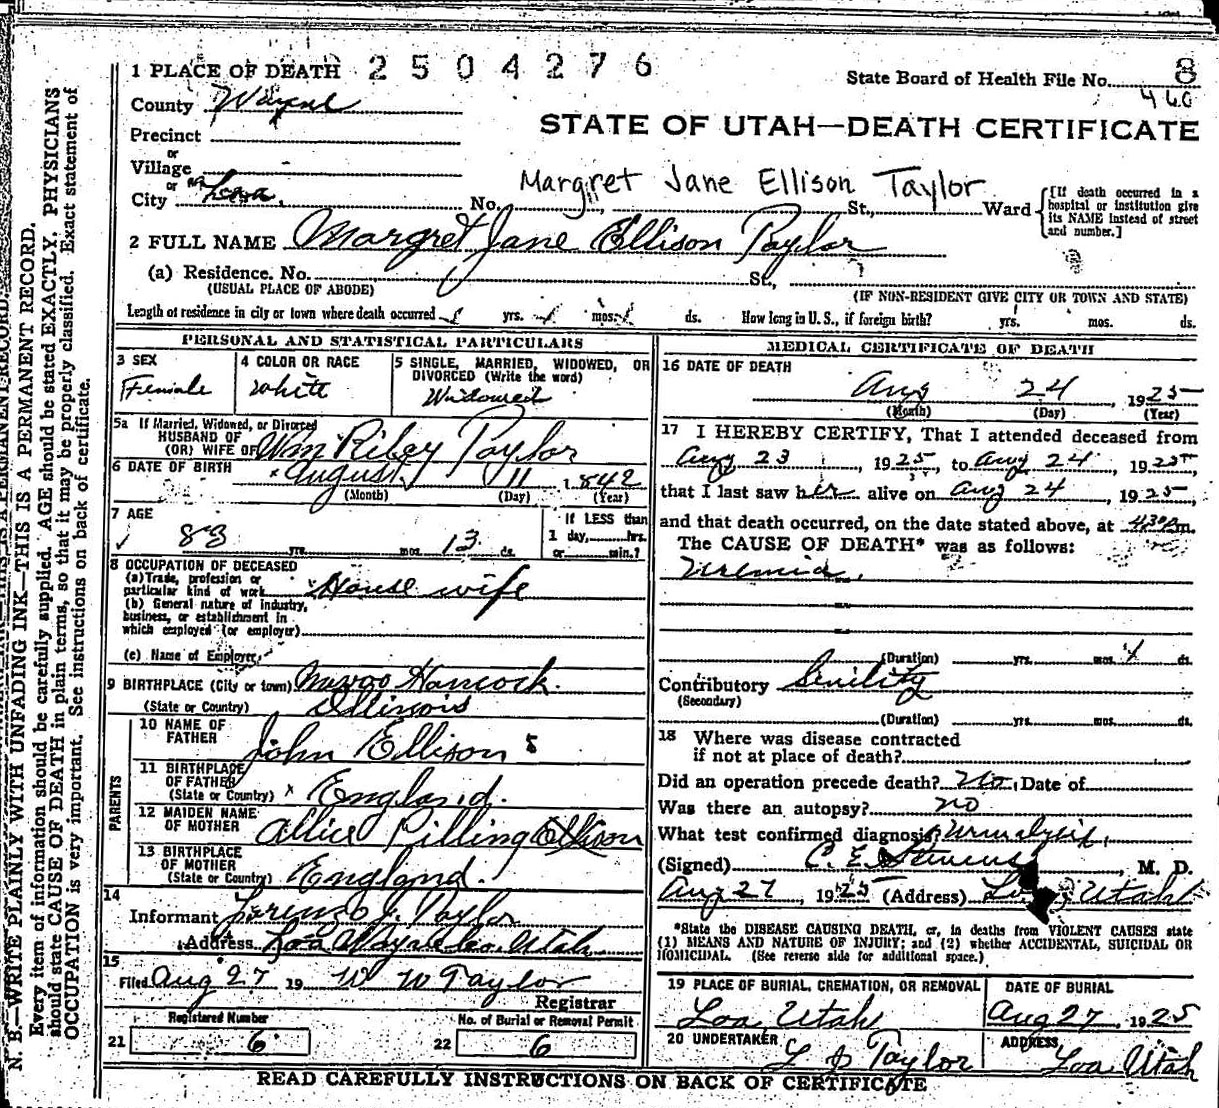 1 PLACE OF DEATH 2504276
State Board of Health File No. 8
County Wayne
460
STATE OF UTAH—DEATH CERTIFICATE
Precinct
or
Village
or
City Loa.
Margret Jane Ellison Taylor
No. St., Ward
[If death occurred in a hospital or institution give its NAME instead of street and number.]
2 FULL NAME Margret Jane Ellison Taylor
(a) Residence. No. St.,
(USUAL PLACE OF ABODE) (IF NON-RESIDENT GIVE CITY OR TOWN AND STATE)
Length of residence in city or town where death occurred yrs. mos. ds. How long in U. S., if foreign birth? yrs. mos. ds.
PERSONAL AND STATISTICAL PARTICULARS
3 SEX
Female
4 COLOR OR RACE
White
5 SINGLE, MARRIED, WIDOWED, OR DIVORCED (Write the word)
Widowed
5a If Married, Widowed, or Divorced
HUSBAND OF
(OR) WIFE OF Wm Riley Taylor
6 DATE OF BIRTH August 11 1842
(Month) (Day) (Year)
7 AGE
83 yrs. mos. 13 ds.
If LESS than
1 day, hrs.
or min.?
8 OCCUPATION OF DECEASED
(a) Trade, profession or
particular kind of work House wife
(b) General nature of industry,
business, or establishment in
which employed (or employer)
(c) Name of Employer
9 BIRTHPLACE (City or town) Hancock.
(State or Country) Illinois
PARENTS
10 NAME OF
FATHER John Ellison
11 BIRTHPLACE
OF FATHER
(State or Country) England.
12 MAIDEN NAME
OF MOTHER Allice Pilling Ellison
13 BIRTHPLACE
OF MOTHER
(State or Country) England.
14
Informant Lorenzo J. Taylor
Address Loa Wayne Co. Utah
15
Filed Aug 27 19 W W Taylor
Registrar
Registered Number
21 6
No. of Burial or Removal Permit
22 6
MEDICAL CERTIFICATE OF DEATH
16 DATE OF DEATH
Aug 24 1925
(Month) (Day) (Year)
17 I HEREBY CERTIFY, That I attended deceased from
Aug 23, 1925, to Aug 24 1925
that I last saw her alive on Aug 24, 1925,
and that death occurred, on the date stated above, at 4:30 Pm.
The CAUSE OF DEATH* was as follows:
Uremia.
(Duration) yrs. mos. 4 ds.
Contributory Senility
(Secondary)
(Duration) yrs. mos. ds.
18 Where was disease contracted
if not at place of death?
Did an operation precede death? No. Date of
Was there an autopsy? no
What test confirmed diagnosis? Urinalysis.
(Signed) C. E. M. D.
Aug 27, 1925 (Address) Loa, Utah
*State the DISEASE CAUSING DEATH, or, in deaths from VIOLENT CAUSES state
(1) MEANS AND NATURE OF INJURY; and (2) whether ACCIDENTAL, SUICIDAL OR
HOMICIDAL. (See reverse side for additional space.)
19 PLACE OF BURIAL, CREMATION, OR REMOVAL
Loa, Utah
DATE OF BURIAL
Aug 27, 1925
20 UNDERTAKER
Taylor
ADDRESS
Loa. Utah
READ CAREFULLY INSTRUCTIONS ON BACK OF CERTIFICATE
N. B.—WRITE PLAINLY WITH UNFADING INK—THIS IS A PERMANENT RECORD.
Every item of information should be carefully supplied. AGE should be stated EXACTLY. PHYSICIANS
should state CAUSE OF DEATH in plain terms, so that it may be properly classified. Exact statement of
OCCUPATION is very important. See instructions on back of certificate.